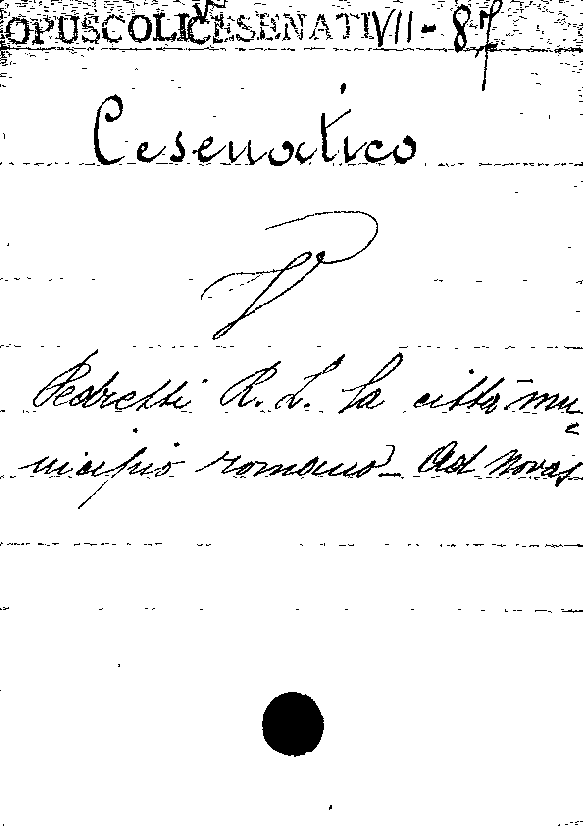 OPUSCOLI CESENATI VII - 87
Cesenatico
V
Pedretti R. L. La città mu-
nicipio romano - Ad Novas